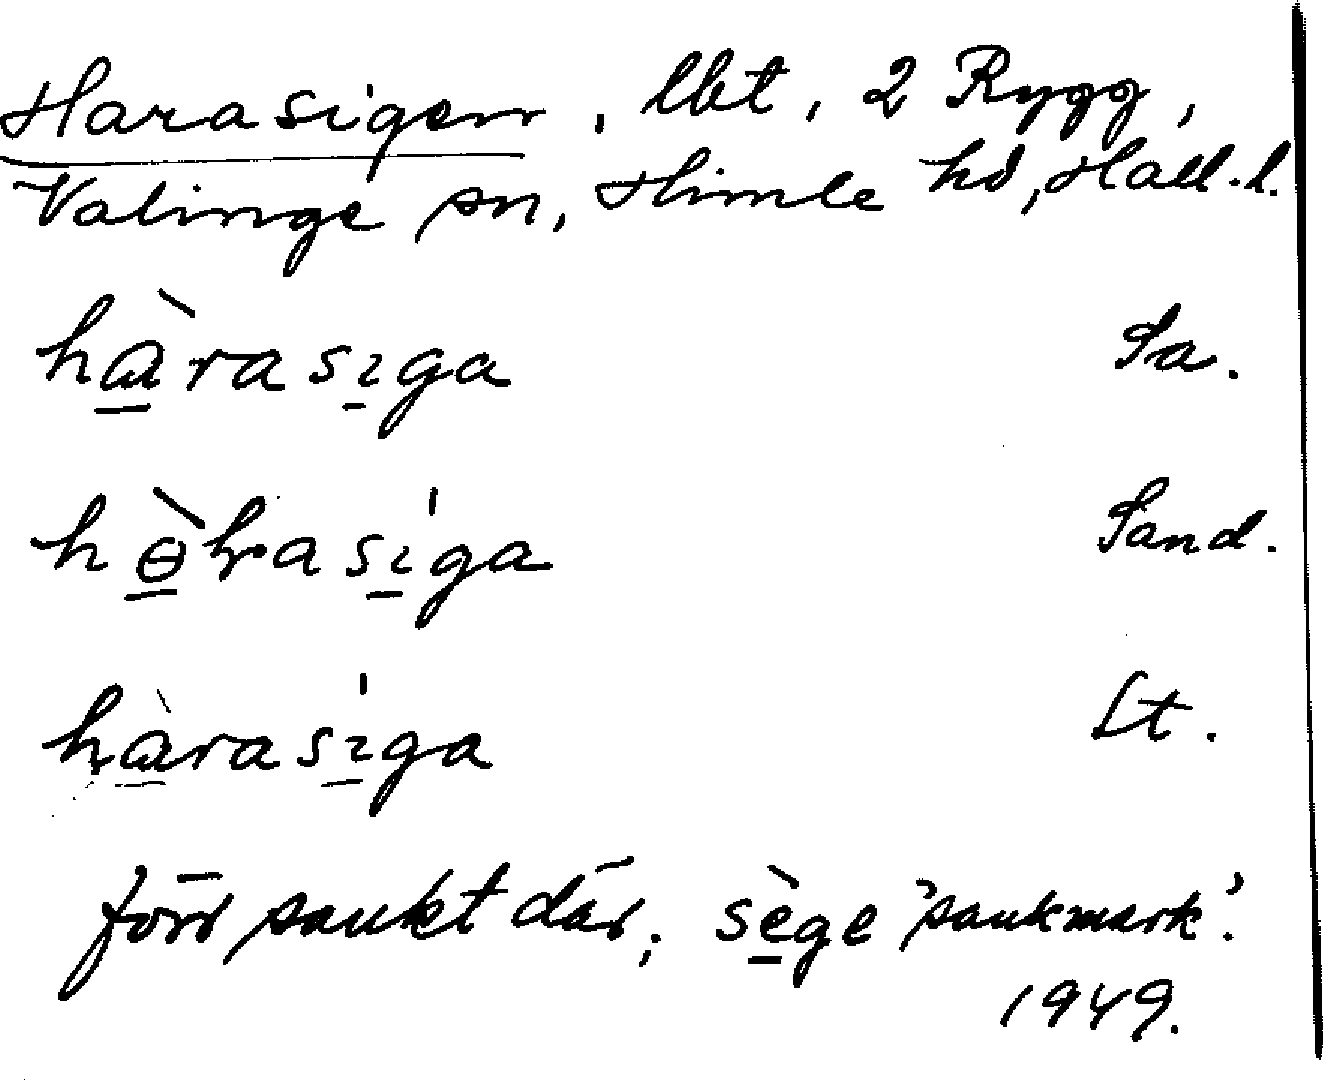 Harasigen, lbt, 2 Rygg,
Valinge sn, Himle hd, Hall. l.
hàrasiga Sa.
hèrasíga Sand.
hàrasíga Lt.
förr sankt där; sège 'sankmark'.
1949.